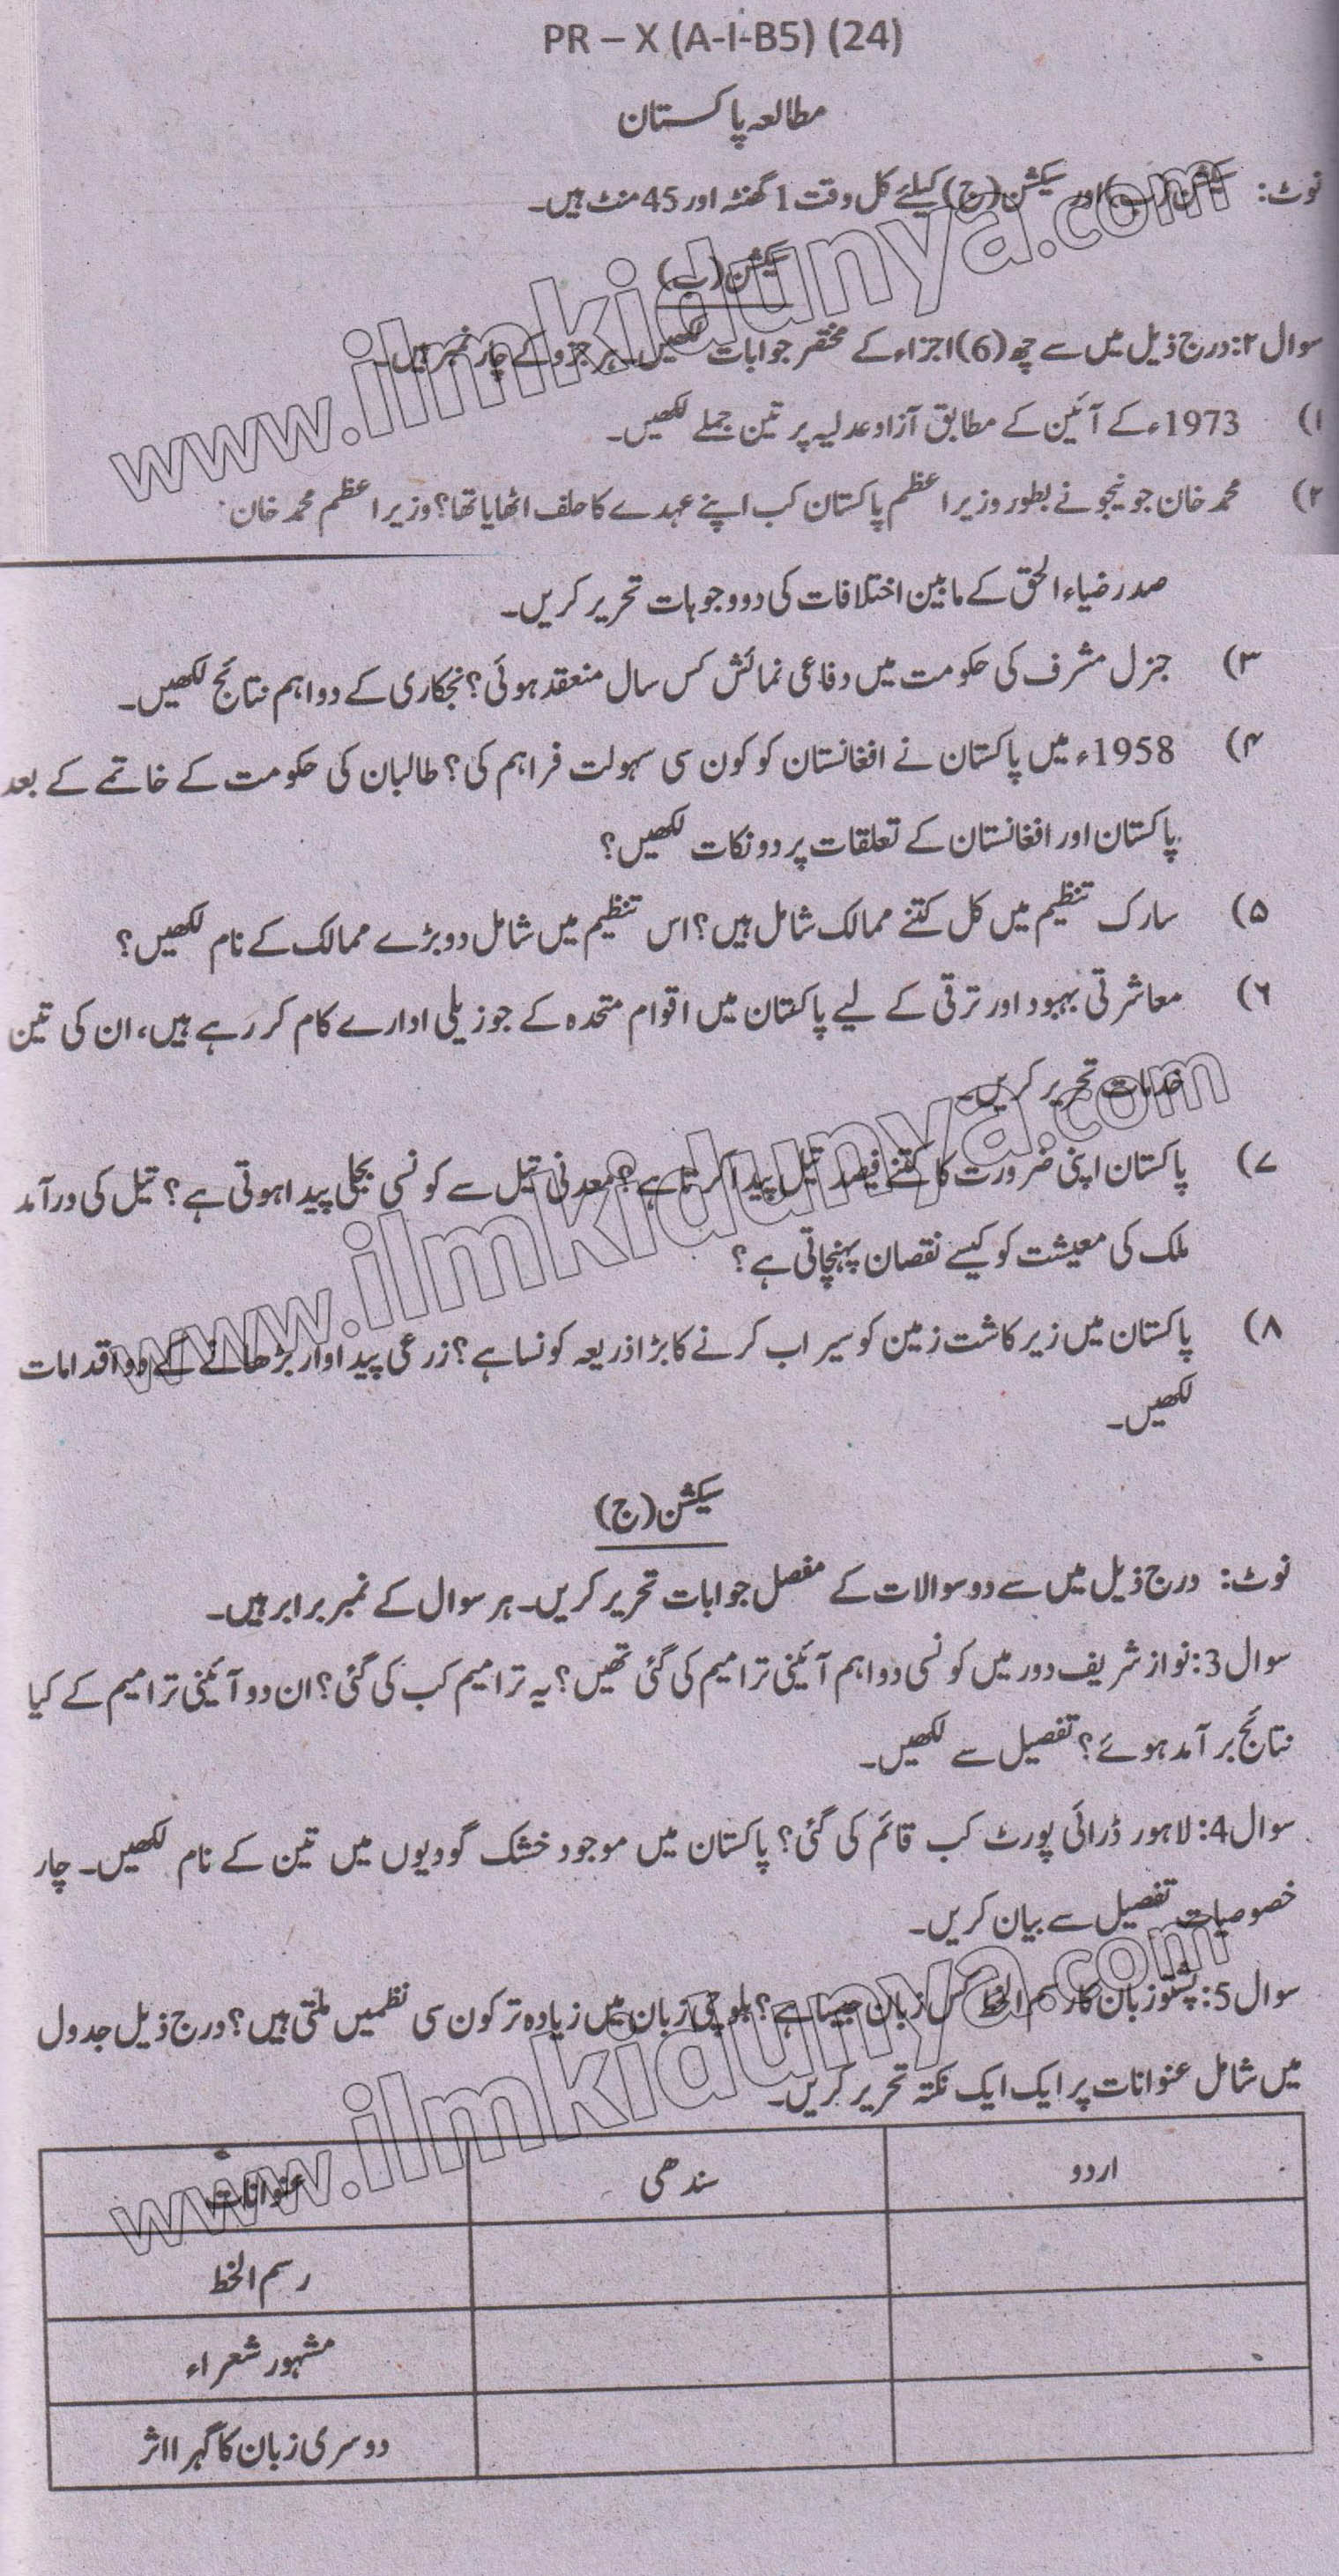 PR – X (A-I-B5) (24)
مطالعہ پاکستان
نوٹ: سیکشن (ب) اور سیکشن (ج) کیلئے کل وقت 1 گھنٹہ اور 45 منٹ ہیں۔
سیکشن (ب)
سوال ۲: درج ذیل میں سے چھ (6) اجزاء کے مختصر جوابات لکھیں۔ ہر جزو کے چار نمبر ہیں۔
۱) 1973ء کے آئین کے مطابق آزاد عدلیہ پر تین جملے لکھیں۔
۲) محمد خان جونیجو نے بطور وزیر اعظم پاکستان کب اپنے عہدے کا حلف اٹھایا تھا؟ وزیر اعظم محمد خان
صدر ضیاء الحق کے مابین اختلافات کی دو وجوہات تحریر کریں۔
۳) جنرل مشرف کی حکومت میں دفاعی نمائش کس سال منعقد ہوئی؟ نجکاری کے دو اہم نتائج لکھیں۔
۴) 1958ء میں پاکستان نے افغانستان کو کون سی سہولت فراہم کی؟ طالبان کی حکومت کے خاتمے کے بعد
پاکستان اور افغانستان کے تعلقات پر دو نکات لکھیں؟
۵) سارک تنظیم میں کل کتنے ممالک شامل ہیں؟ اس تنظیم میں شامل دو بڑے ممالک کے نام لکھیں؟
۶) معاشرتی بہبود اور ترقی کے لیے پاکستان میں اقوام متحدہ کے جو ذیلی ادارے کام کر رہے ہیں، ان کی تین
خدمات تحریر کریں۔
۷) پاکستان اپنی ضرورت کا کتنے فیصد تیل پیدا کرتا ہے؟ معدنی تیل سے کونسی بجلی پیدا ہوتی ہے؟ تیل کی درآمد
ملک کی معیشت کو کیسے نقصان پہنچاتی ہے؟
۸) پاکستان میں زیر کاشت زمین کو سیراب کرنے کا بڑا ذریعہ کونسا ہے؟ زرعی پیداوار بڑھانے کے دو اقدامات
لکھیں۔
سیکشن (ج)
نوٹ: درج ذیل میں سے دو سوالات کے مفصل جوابات تحریر کریں۔ ہر سوال کے نمبر برابر ہیں۔
سوال 3: نواز شریف دور میں کونسی دو اہم آئینی ترامیم کی گئی تھیں؟ یہ ترامیم کب کی گئی؟ ان دو آئینی ترامیم کے کیا
نتائج برآمد ہوئے؟ تفصیل سے لکھیں۔
سوال 4: لاہور ڈرائی پورٹ کب قائم کی گئی؟ پاکستان میں موجود خشک گودیوں میں تین کے نام لکھیں۔ چار
خصوصیات تفصیل سے بیان کریں۔
سوال 5: پشتو زبان کا رسم الخط کس زبان جیسا ہے؟ بلوچی زبان میں زیادہ تر کون سی نظمیں ملتی ہیں؟ درج ذیل جدول
میں شامل عنوانات پر ایک ایک نکتہ تحریر کریں۔
اردو سندھی عنوانات
رسم الخط
مشہور شعراء
دوسری زبان کا گہرا اثر
www.ilmkidunya.com
www.ilmkidunya.com
www.ilmkidunya.com